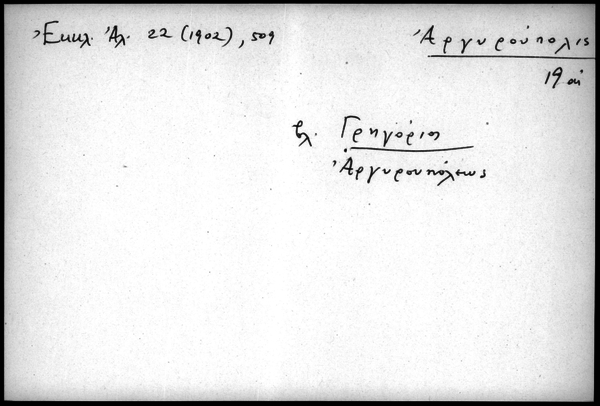 Ἐκκλ. Ἀλ. 22 (1902), 509
Ἀργυρούπολις
19 αἰ
βλ. Γρηγόριος
Ἀργυρουπόλεως